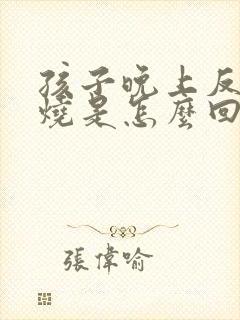 孩子晚上反
燒是怎麼回
張偉喻